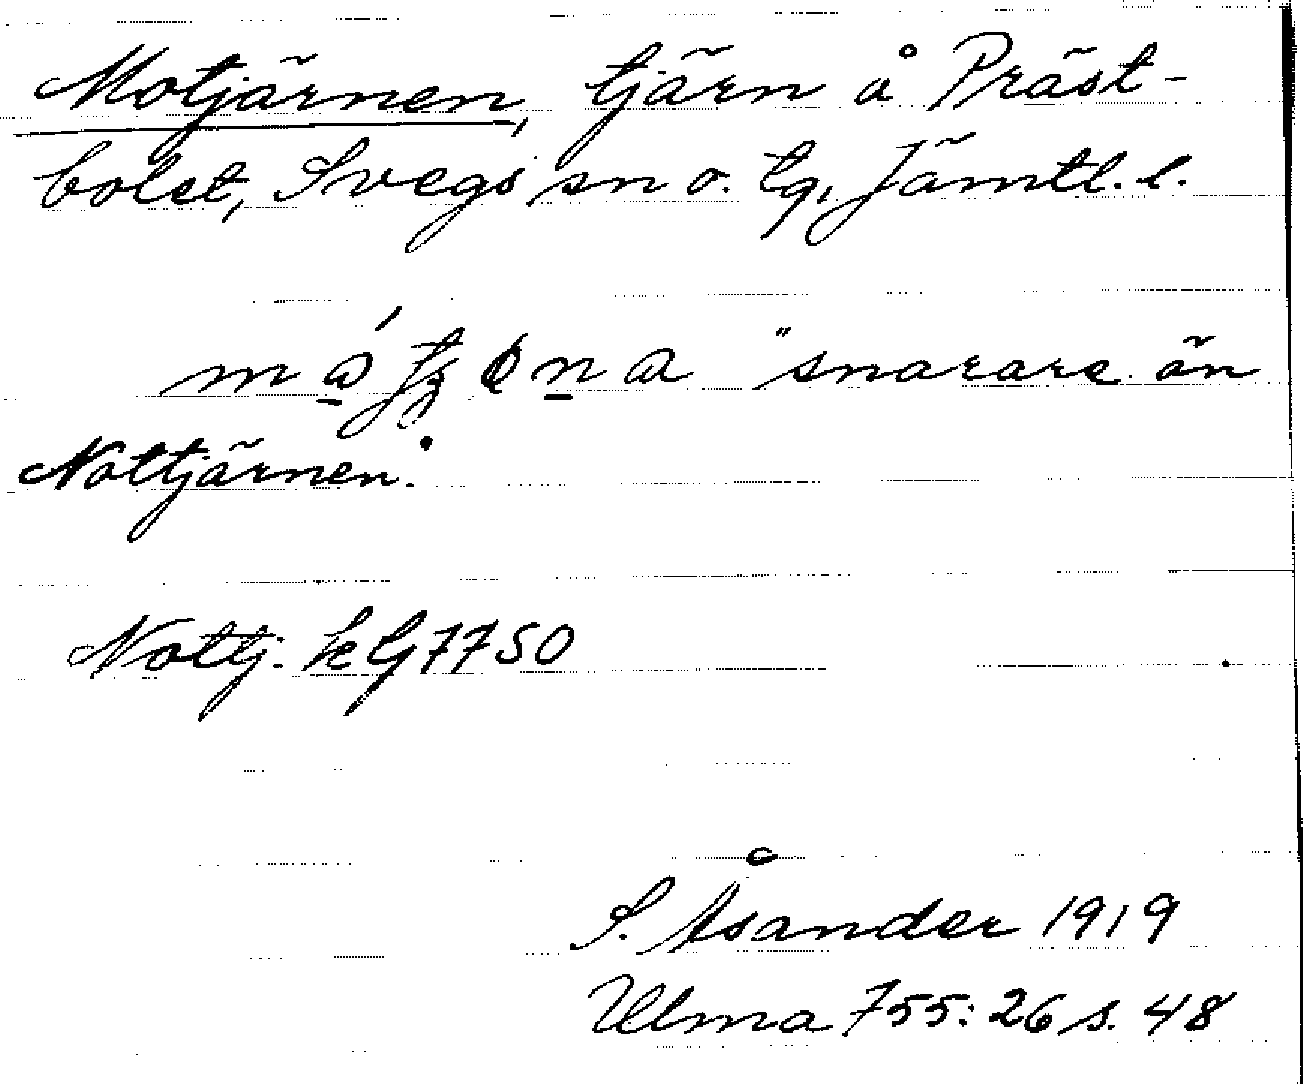 Motjärnen, tjärn å Präst-
bolet, Svegs sn o. tg, Jämtl. l.
"snarare än
Nottjärnen."
Nottj. k G 7750
S. Åsander 1919
Ulma 755: 26 s. 48